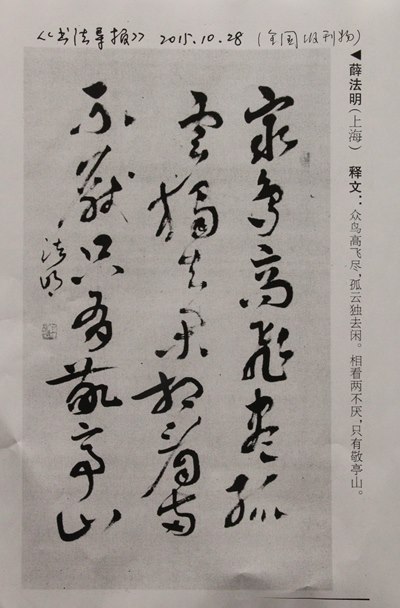 《书法导报》 2015.10.28 (全国性刊物)
◀薛法明(上海) 释文：众鸟高飞尽，孤云独去闲。相看两不厌，只有敬亭山。
众鸟高飞尽孤
云独去闲相看两
不厌只有敬亭山
法明